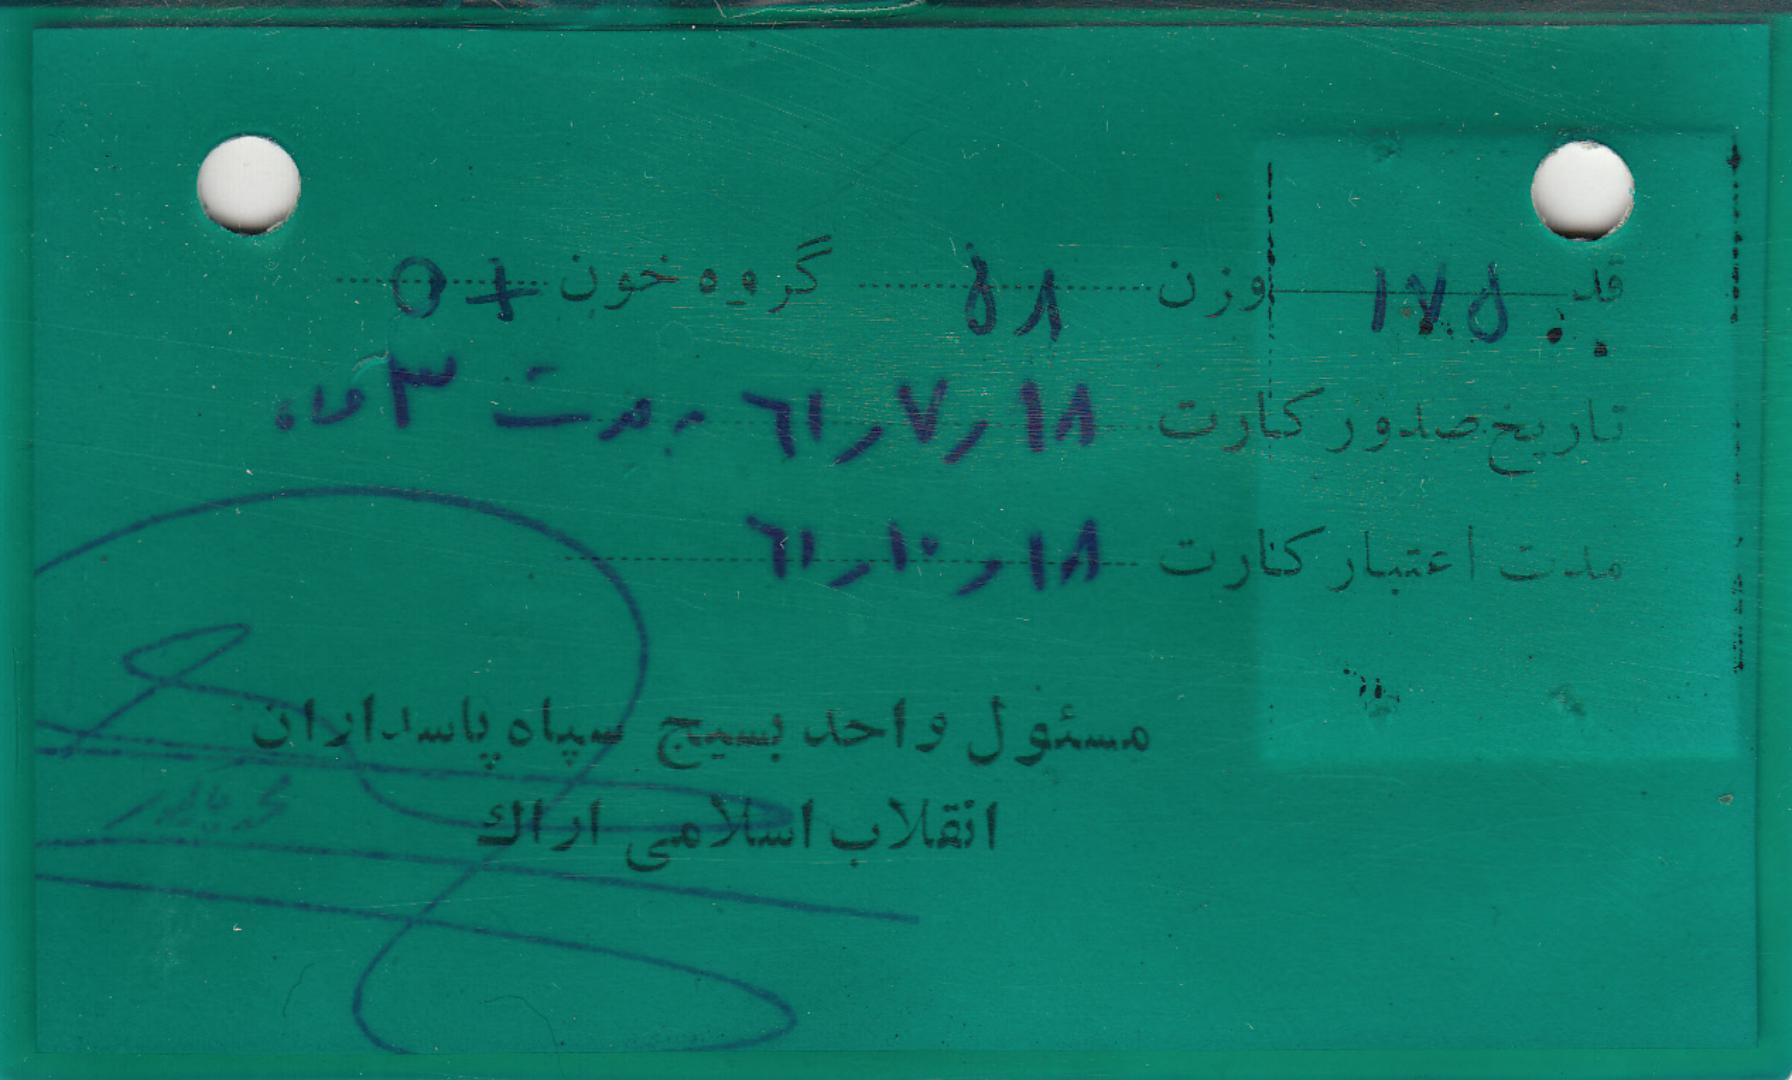 قد ۱۷۵ وزن ۵۸ گروه خون O+
تاریخ صدور کارت ۱۸ر۷ر۶۱ به مدت ۳ ماه
مدت اعتبار کارت ۱۸ر۱۰ر۶۱
مسئول واحد بسیج سپاه پاسداران
انقلاب اسلامی اراك